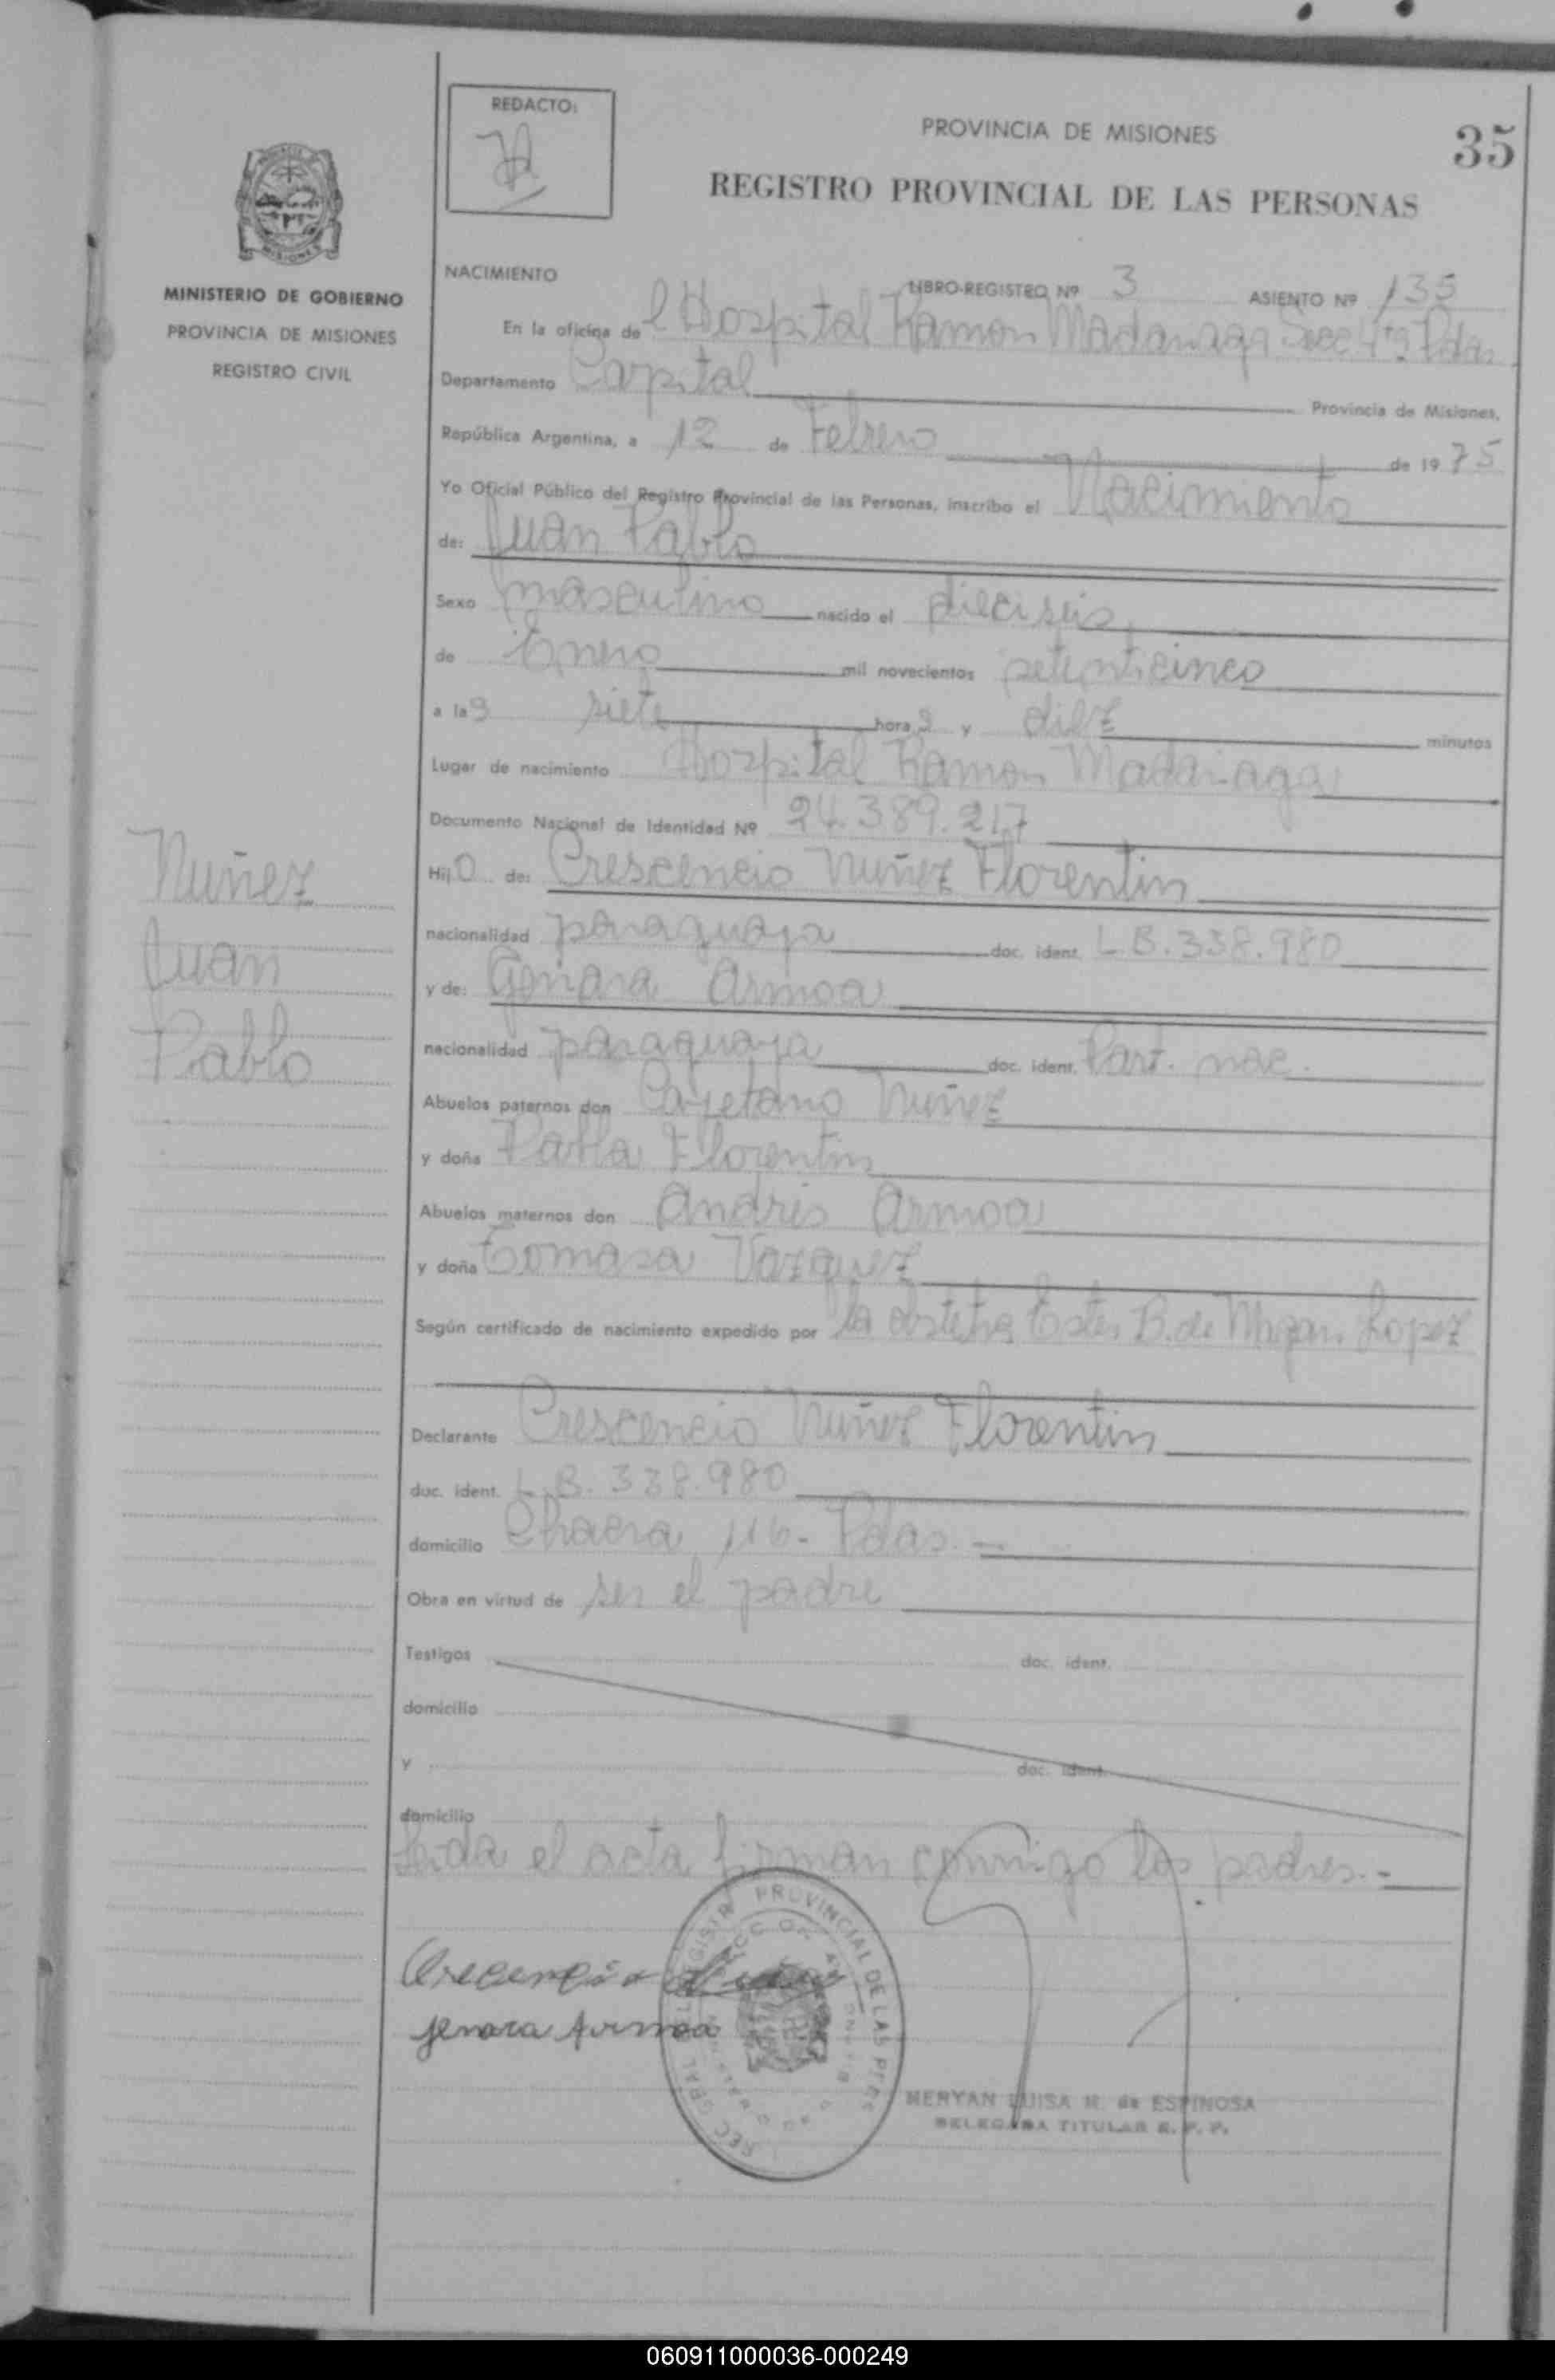 REDACTO:
PROVINCIA DE MISIONES
35
REGISTRO PROVINCIAL DE LAS PERSONAS
MINISTERIO DE GOBIERNO
PROVINCIA DE MISIONES
REGISTRO CIVIL
NACIMIENTO LIBRO-REGISTRO Nº 3 ASIENTO Nº 135
En la oficina de l Hospital Ramon Madariaga Secc 4ta Pdas
Departamento Capital Provincia de Misiones,
República Argentina, a 12 de Febrero de 1975
Yo Oficial Público del Registro Provincial de las Personas, inscribo el Nacimiento
de: Juan Pablo
Sexo masculino nacido el dieciseis
de Enero mil novecientos setenticinco
a las siete horas y diez minutos
Lugar de nacimiento Hospital Ramon Madariaga
Documento Nacional de Identidad Nº 24.389.217
Nuñez
Juan
Pablo
Hijo de: Crescencio Nuñez Florentin
nacionalidad paraguaya doc. ident. L.B. 338.980
y de: Genara Armoa
nacionalidad paraguaya doc. ident. Part. nac.
Abuelos paternos don Cayetano Nuñez
y doña Pabla Florentin
Abuelos maternos don Andres Armoa
y doña Tomasa Vazquez
Según certificado de nacimiento expedido por la obstetra Ester B. de Lopez
Declarante Crescencio Nuñez Florentin
doc. ident. L.B. 338.980
domicilio Chacra 116 - Pdas. -
Obra en virtud de ser el padre
Testigos doc. ident.
domicilio
y doc. ident.
domicilio
Leida el acta firman conmigo los padres.-
Crecencio
Jenara Armoa
PROVINCIAL DE LAS PERS
MERYAN LUISA R. de ESPINOSA
DELEGADA TITULAR R. P. P.
060911000036-000249